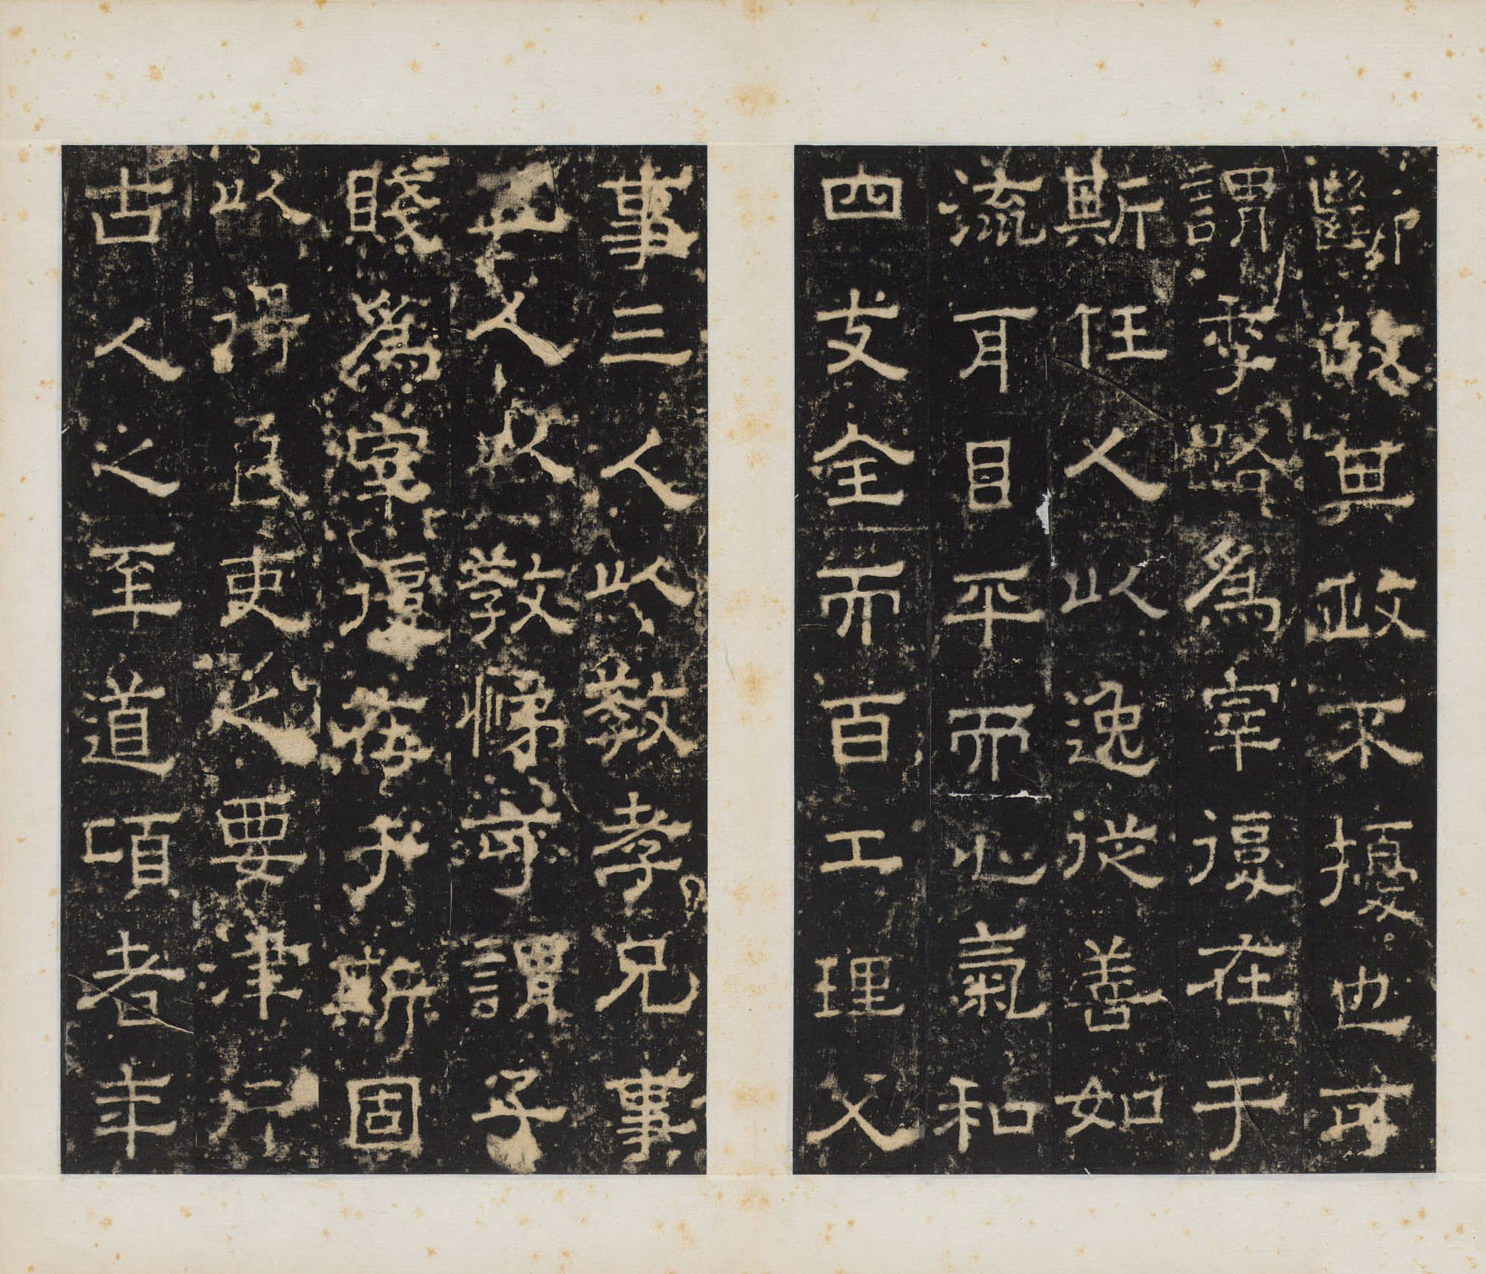 故其政不擾也可
謂季路為宰復在于
斯任人以逸從善如
流耳目平而心氣和
四支全而百工理父
事三人以教孝兄事
五人以教悌可謂子
賤為宰復在于斯固
以得良吏之要津
古人之至道頃者年